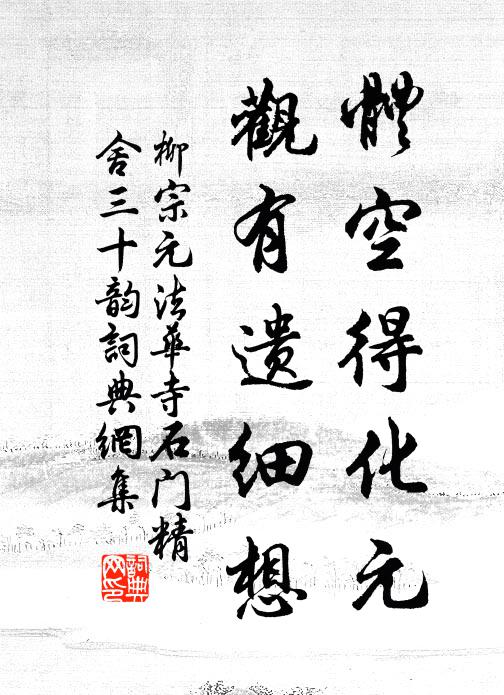 體空得化元
觀有遺細想
柳宗元法華寺石门精
舍三十韵詞典網集
詞典网印